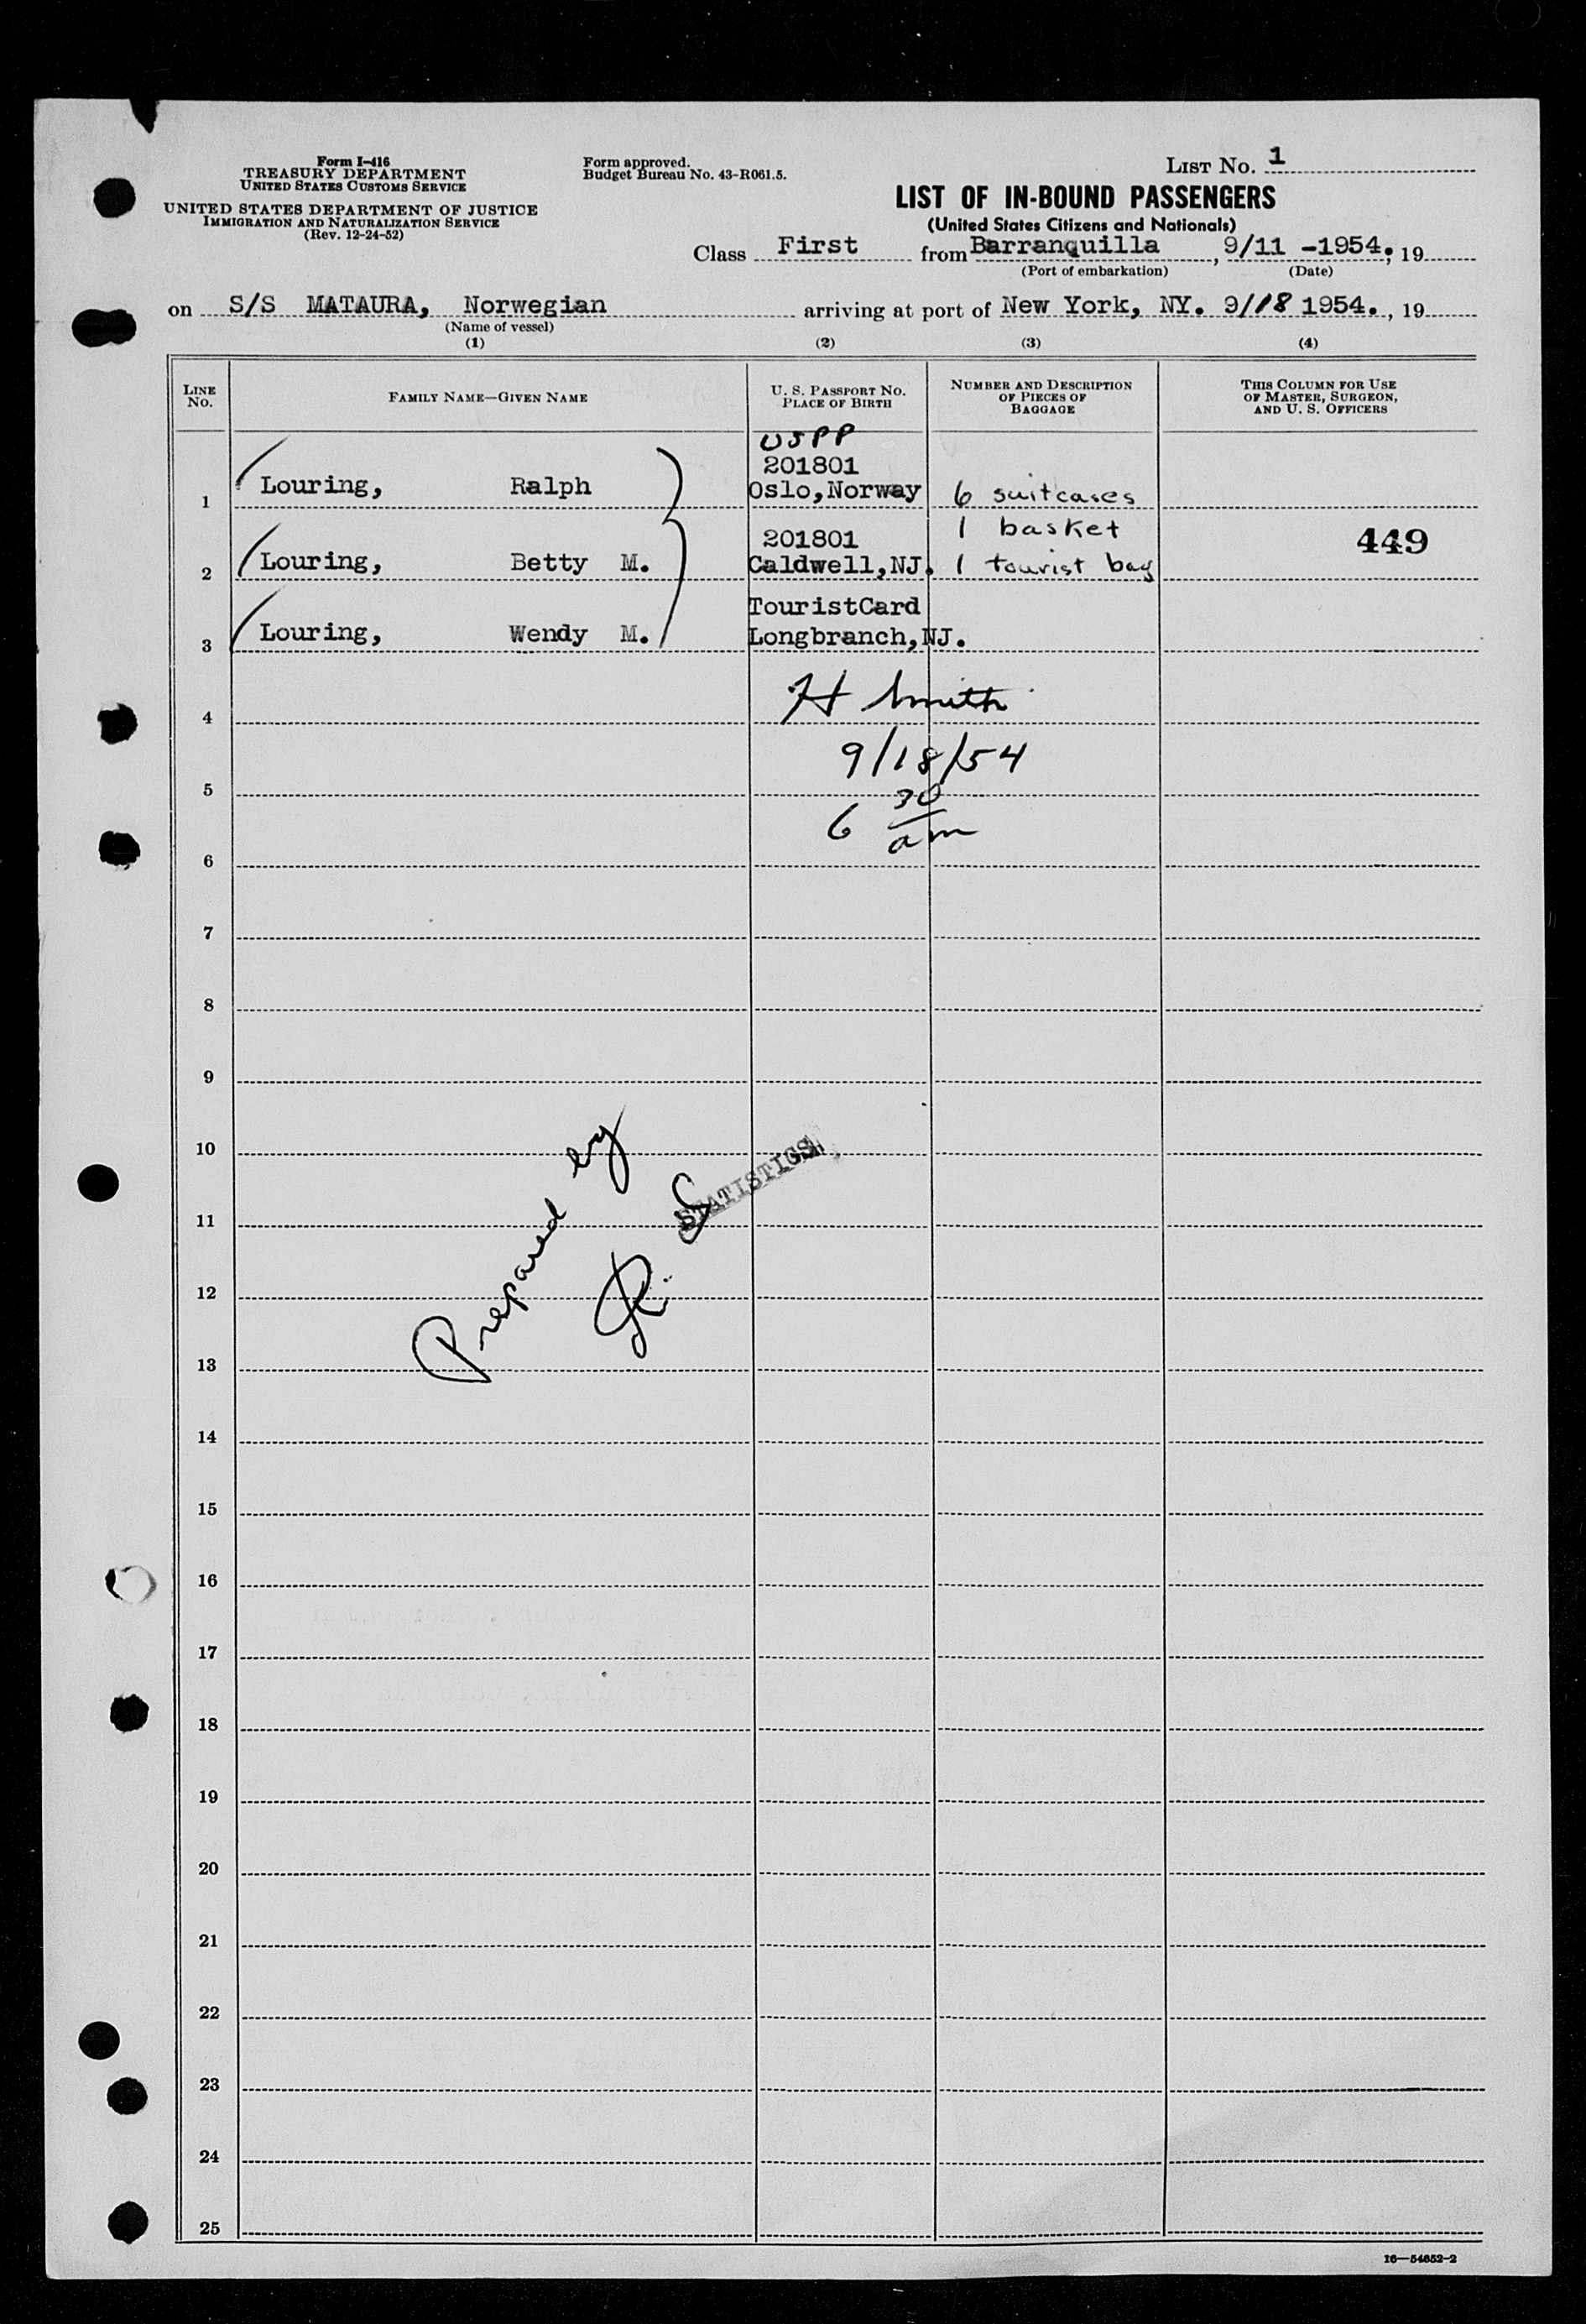 Form I-416
TREASURY DEPARTMENT
UNITED STATES CUSTOMS SERVICE
UNITED STATES DEPARTMENT OF JUSTICE
IMMIGRATION AND NATURALIZATION SERVICE
(Rev. 12-24-52)
Form approved.
Budget Bureau No. 43-R061.5.
LIST No. 1
LIST OF IN-BOUND PASSENGERS
(United States Citizens and Nationals)
Class First from Barranquilla, 9/11 -1954., 19
(Port of embarkation) (Date)
on S/S MATAURA, Norwegian arriving at port of New York, NY. 9/18 1954., 19
(Name of vessel)
(1) (2) (3) (4)
LINE No.
FAMILY NAME—GIVEN NAME
U. S. PASSPORT No.
PLACE OF BIRTH
NUMBER AND DESCRIPTION
OF PIECES OF
BAGGAGE
THIS COLUMN FOR USE
OF MASTER, SURGEON,
AND U. S. OFFICERS
USPP
201801
1 Louring, Ralph Oslo,Norway 6 suitcases
201801 1 basket 449
2 Louring, Betty M. Caldwell,NJ. 1 tourist bag
TouristCard
3 Louring, Wendy M. Longbranch,NJ.
4 H Smith
9/18/54
5
6 30 am
6
7
8
9
10
11
12
13
Prepared by
R. L
STATISTICS
14
15
16
17
18
19
20
21
22
23
24
25
16—54652-2